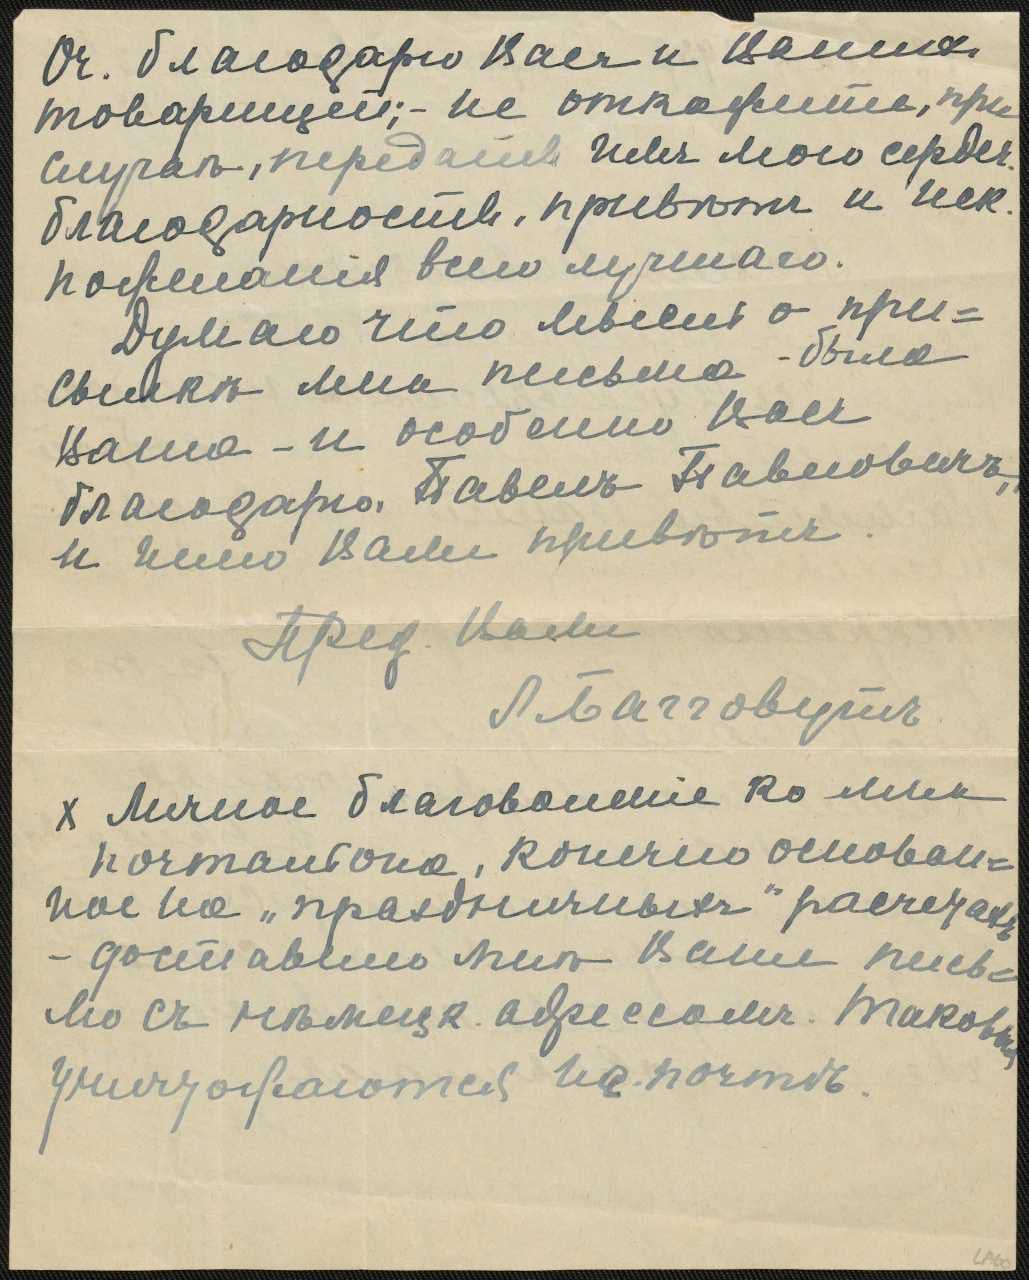 Оч. благодарю Васъ и Вашихъ
товарищей; – не откажите, при
случаѣ, передать имъ мою сердеч.
благодарность, привѣтъ и иск.
пожеланія всего лучшаго.
Думаю что мысль о при=
сылкѣ мнѣ письма – была
Ваша – и особенно Васъ
благодарю, Павелъ Павловичъ,
и шлю Вамъ привѣтъ.
Пред. Вамъ
А Багговутъ
х Личное благоволеніе ко мнѣ
почтантона, конечно основан=
ное на „праздничныхъ" расчетахъ
– доставило мнѣ Ваше пись=
мо съ нѣмецк. адрессомъ. Таковыя
уничтожаются на почтѣ.